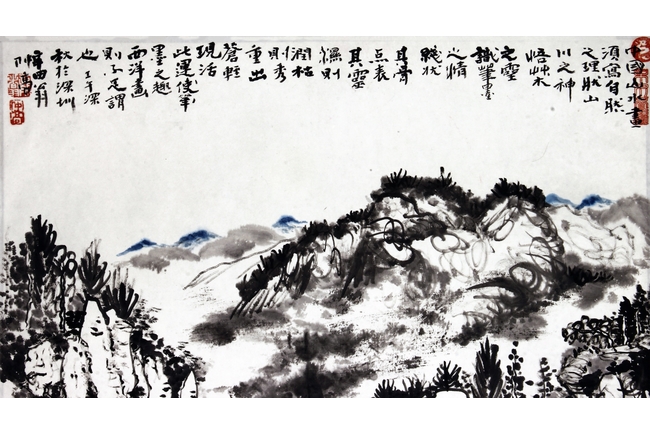 中國山水畫
須寫自然
之理狀山
川之神
悟草木
之靈
識筆墨
之情
綫狀
其骨
点表
其靈
濕則
潤枯
則秀
重出
蒼輕
現活
此運使筆
墨之趣
西洋畫
則不足謂
也 壬午深
秋於深圳